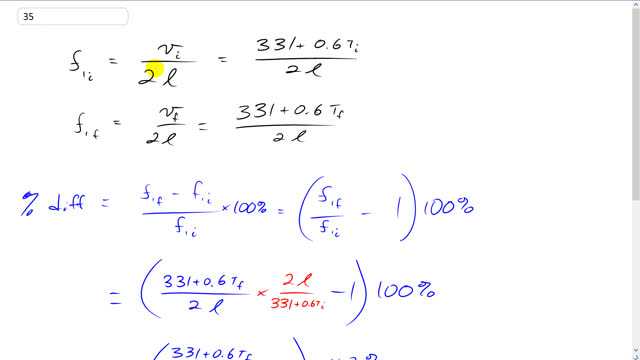 35
f₁ᵢ = vᵢ / 2ℓ = 331 + 0.6Tᵢ / 2ℓ
f₁f = vf / 2ℓ = 331 + 0.6Tf / 2ℓ
% diff = f₁f − f₁ᵢ / f₁ᵢ × 100% = (f₁f / f₁ᵢ − 1) 100%
= (331+0.6Tf / 2ℓ × 2ℓ / 331+0.6Tᵢ − 1) 100%
(331+0.6Tf